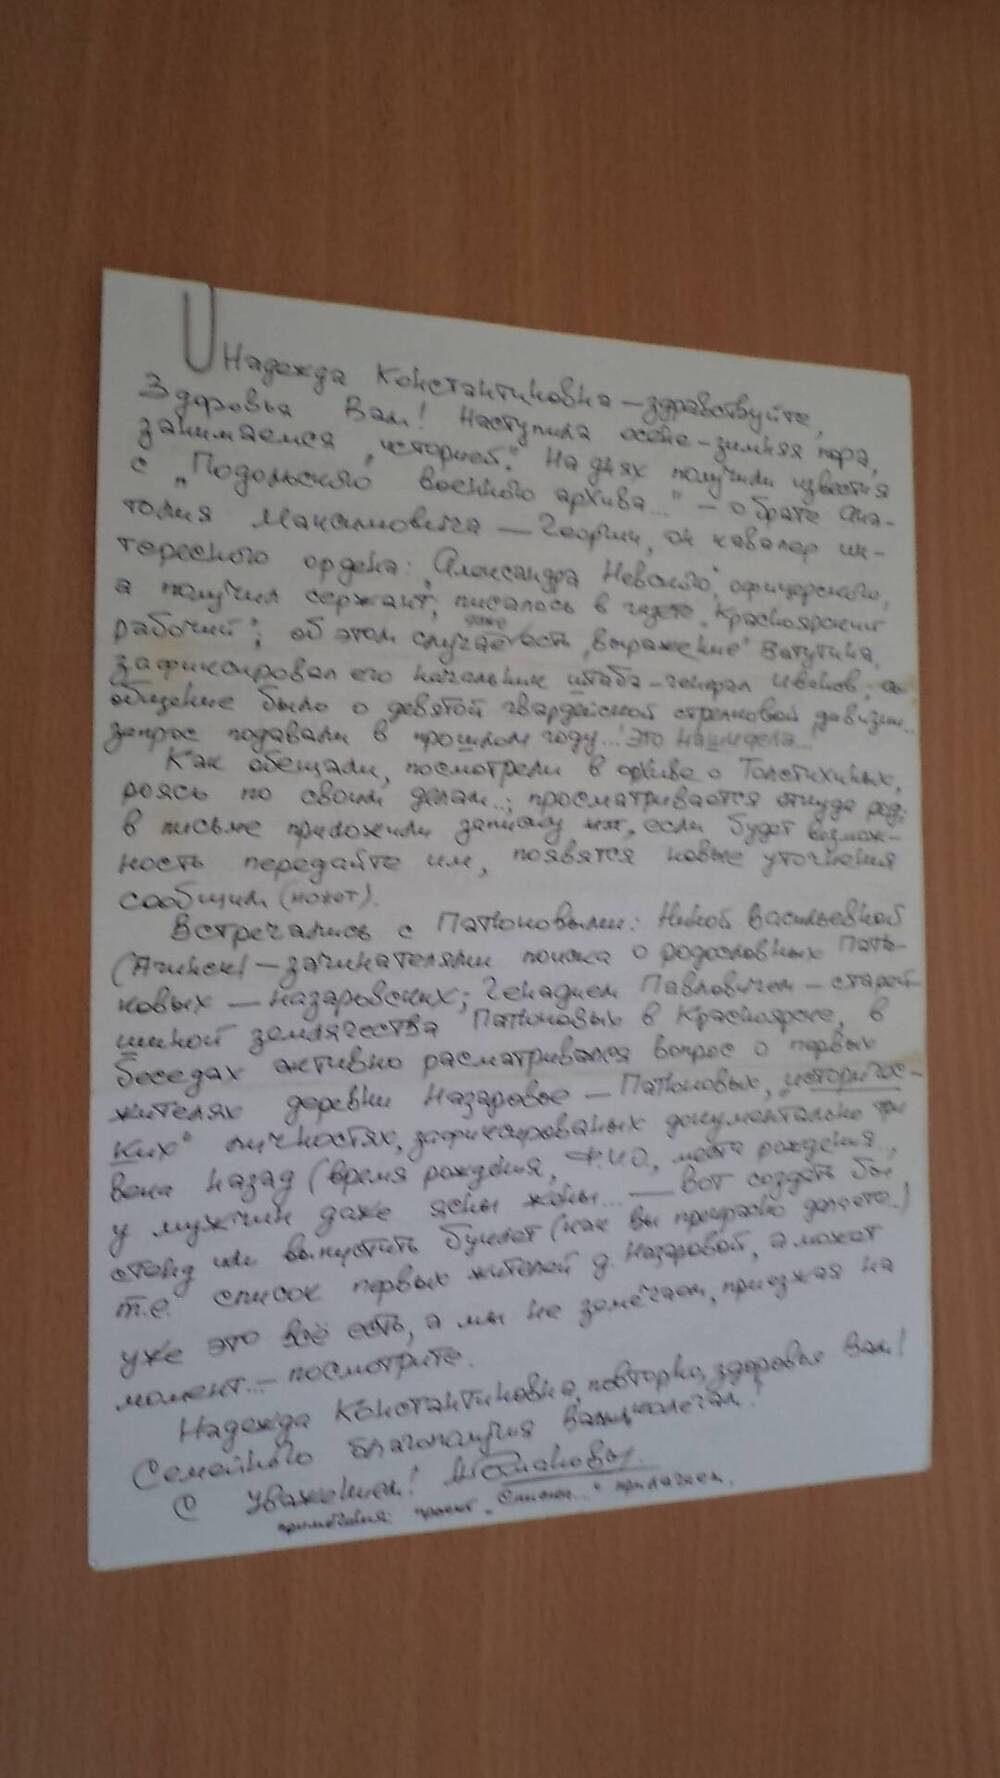 Надежда Константиновна – здравствуйте,
Здоровья Вам! Наступила осене-зимняя пора,
занимаемся „историей". На днях получили известия
с „Подольского военного архива..." – о брате Ана-
толия Максимовича – Георгии, он кавалер ин-
тересного ордена: „Александра Невского", офицерского,
а получил сержант, писалось в газете „Красноярский
рабочий"; об этом случае даже есть „выражение" Ватутина,
зафиксировал его начальник штаба – генерал Иванов; со-
общение было о девятой гвардейской стрелковой дивизии..
запрос подавали в прошлом году... Это наши дела...
Как обещали, посмотрели в архиве о Толстихиных,
роясь по своим делам..; просматривается откуда род;
в письме приложили записку им, если будет возмож-
ность передайте им, появятся новые уточнения
сообщим (может).
Встречались с Патюковыми: Ниной Васильевной
(Ачинск) – зачинателями поиска о родословных Патю-
ковых – назаровских; Генадием Павловичем – старей-
шиной землячества Патюковых в Красноярске, в
беседах активно расматривался вопрос о первых
жителях деревни Назаровое – Патюковых, „историчес-
ких" личностях, зафиксированых документально три
века назад (время рождения, Ф.И.О, места рождения..,
у мужчин даже ясны жёны... – вот создать бы
стенд или выпустить буклет (как вы прекрасно делаете..)
т.е. список первых жителей д. Назаровой, а может
уже это всё есть, а мы не замечаем, приезжая на
момент... – посмотрите.
Надежда Константиновна, повторно, здоровья Вам!
Семейного благополучия Вашим
С уважением!
примечания: проект „Списка..." прилагаем.